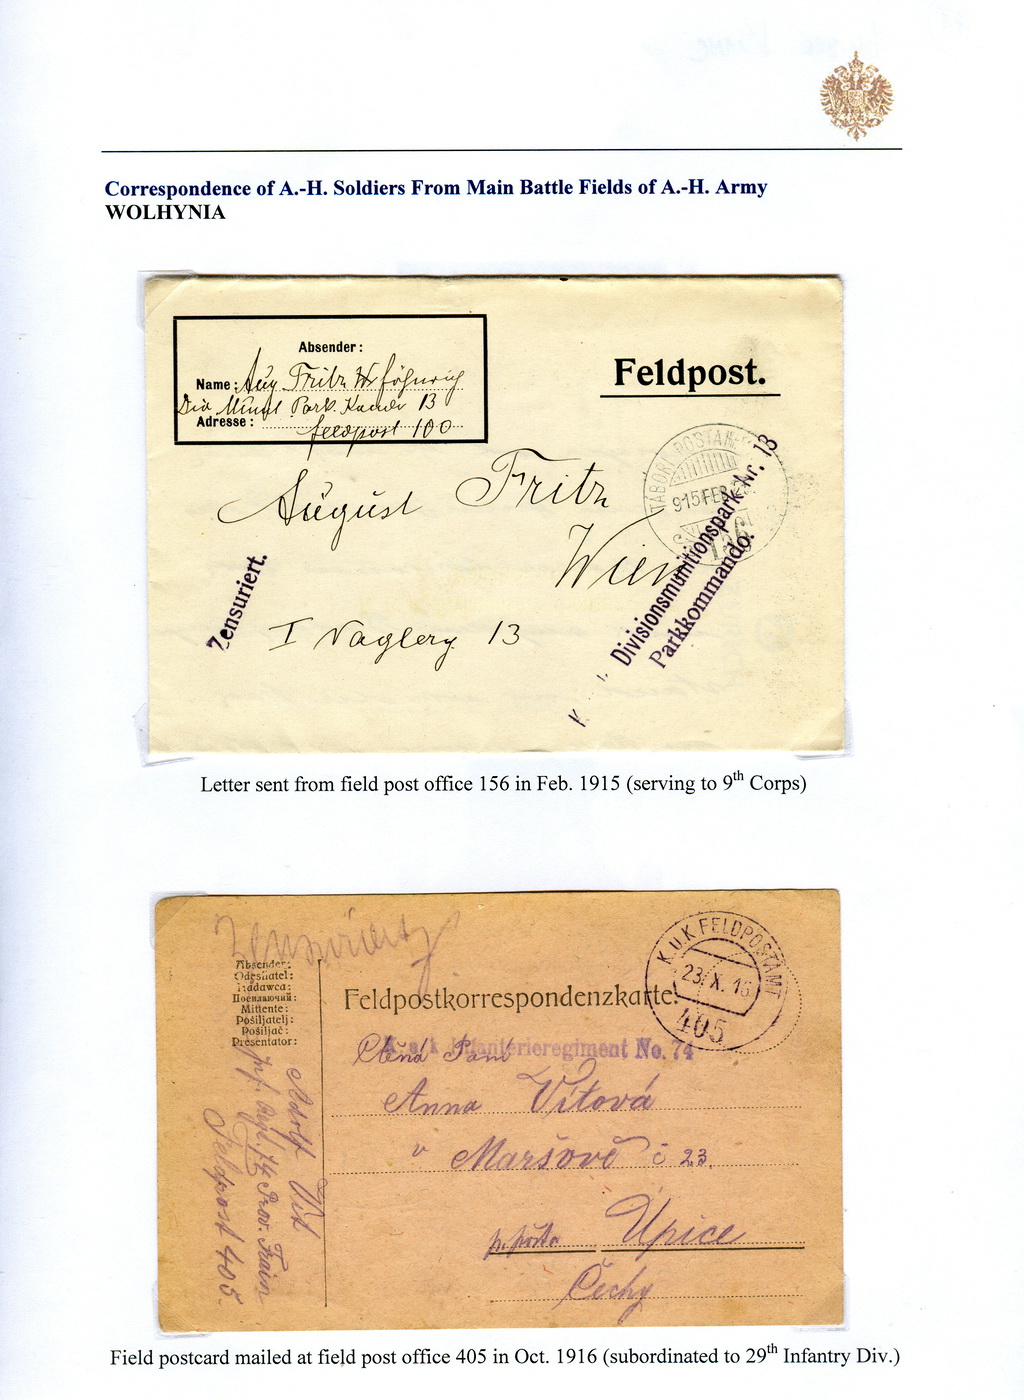 Correspondence of A.-H. Soldiers From Main Battle Fields of A.-H. Army
WOLHYNIA
Absender:
Name: Aug Fritz
Div Munit Park Kmdo 13
Adresse:
feldpost 100
Feldpost.
TABORI POSTA
915 FEB
156
August Fritz
Wien
I Naglerg 13
Zensuriert.
Divisionsmunitionspark Nr. 13
Parkkommando.
Letter sent from field post office 156 in Feb. 1915 (serving to 9th Corps)
Zensuriert
Absender:
Odesílatel:
Nadawca:
Посилаючий:
Mittente:
Pošiljatelj:
Pošiljač:
Prezentator:
Adolf Vít
Inf. Regt. 74 Prov. Train
Feldpost 405.
K.u.K. FELDPOSTAMT
23.X.16
405
Feldpostkorrespondenzkarte.
k.u.k. Infanterieregiment No. 74
Ctěná Paní
Anna Vítová
v Maršově č 23.
p. pošta Úpice
Čechy
Field postcard mailed at field post office 405 in Oct. 1916 (subordinated to 29th Infantry Div.)